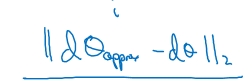 i
‖dθ_approx - dθ‖₂